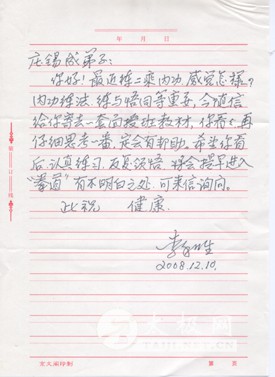 年 月 日
庄锡成弟子:
你好!最近练二乘内功,感觉怎样?
内功练法,练与悟同等重要,今随信
给你寄去一套面授班教材,你看看再
仔细思考一番,定会有帮助,希望你看
后,认真练习,反复领悟,将会提早进入
“拳道”有不明白之处,可来信询问。
此祝 健康.
2008.12.10.
太极网
第 页